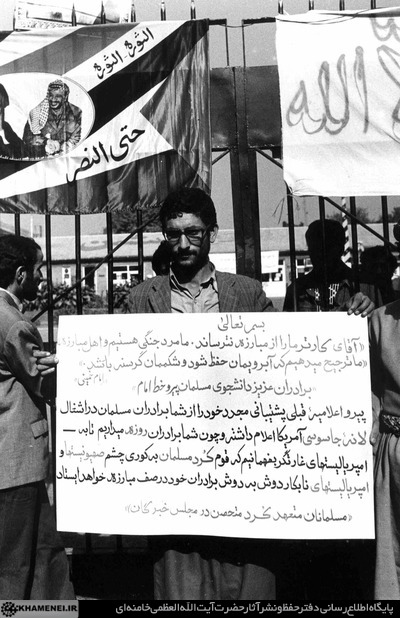 الثورة - الثورة
حتی النصر
الله
بسم تعالی
«آقای کارتر ما را از مبارزه نترساند. ما مرد جنگی هستیم و اهل مبارزه.
ما ترجیح میدهیم که آبرویمان حفظ شود و شکممان گرسنه باشد.»
امام خمینی
«برادران عزیز دانشجوی مسلمان پیرو خط امام»
پیرو اعلامیه قبلی پشتیبانی مجدد خود را از شما برادران مسلمان در اشغال
لانه جاسوسی آمریکا اعلام داشته و چون شما برادران روزه میداریم تا به
امپریالیستهای غارتگر بفهمانیم که قوم کرد مسلمان به کوری چشم صهیونیستها و
امپریالیستهای نابکار دوش به دوش برادران خود در صف مبارزه خواهد ایستاد
«مسلمانان متعهد کرد متحصن در مجلس خبرگان»
KHAMENEI.IR
پایگاه اطلاع‌رسانی دفتر حفظ و نشر آثار حضرت آیت‌الله‌العظمی خامنه‌ای